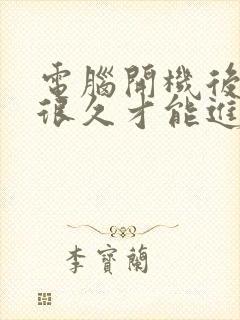 電腦開機後
很久才能進
李寶蘭